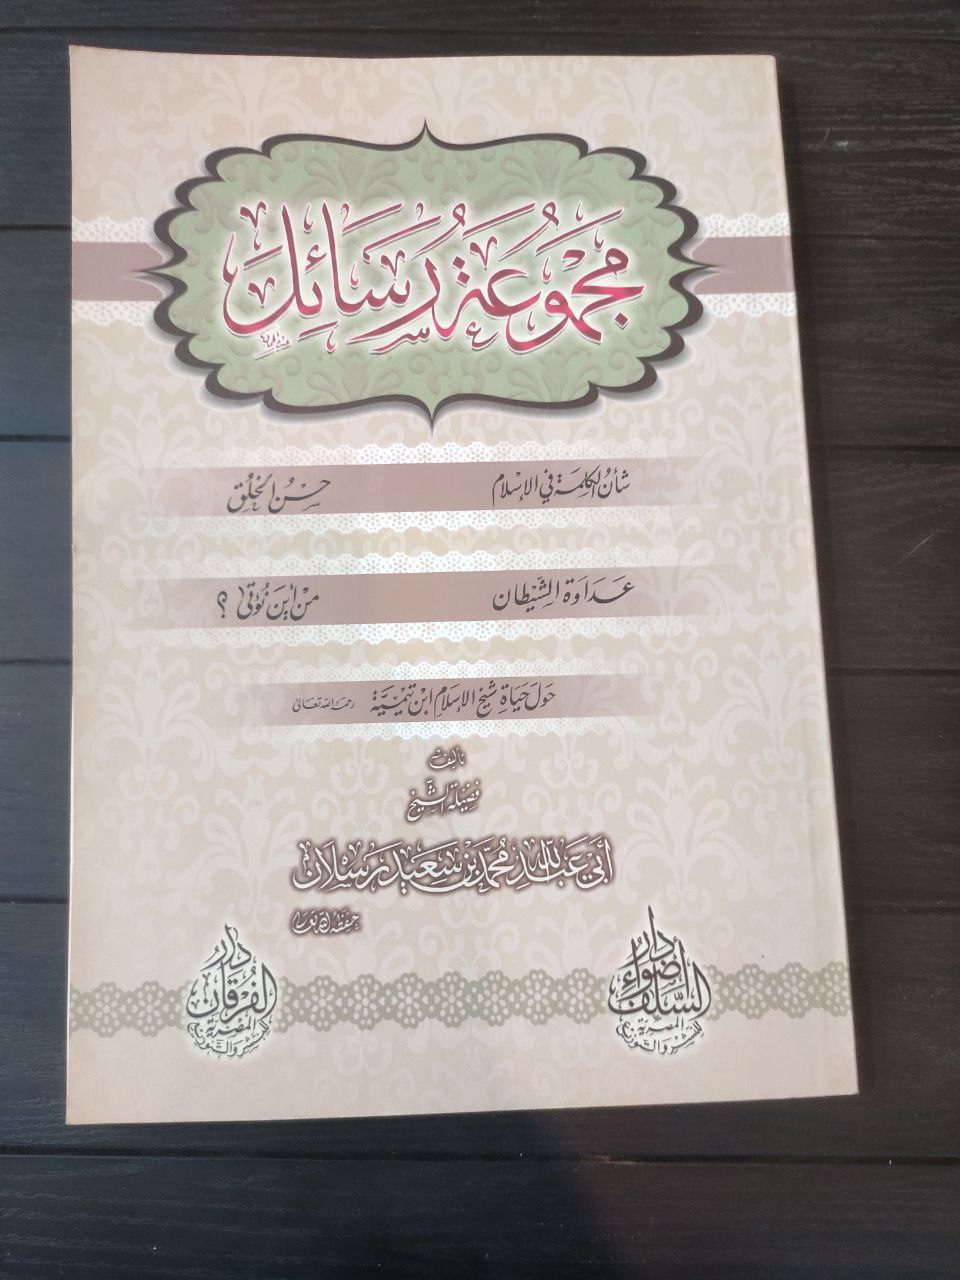 مَجْمُوعَةُ رَسَائِلَ
شأن الكلمة في الإسلام
حسن الخلق
عداوة الشيطان
من أين نؤتى ؟
حول حياة شيخ الإسلام ابن تيمية رحمه الله تعالى
تأليف
فضيلة الشيخ
أبي عبد الله محمد بن سعيد رسلان
حفظه الله تعالى
دار أضواء السلف
المصرية
للنشر والتوزيع
دار الفرقان
المصرية
للنشر والتوزيع